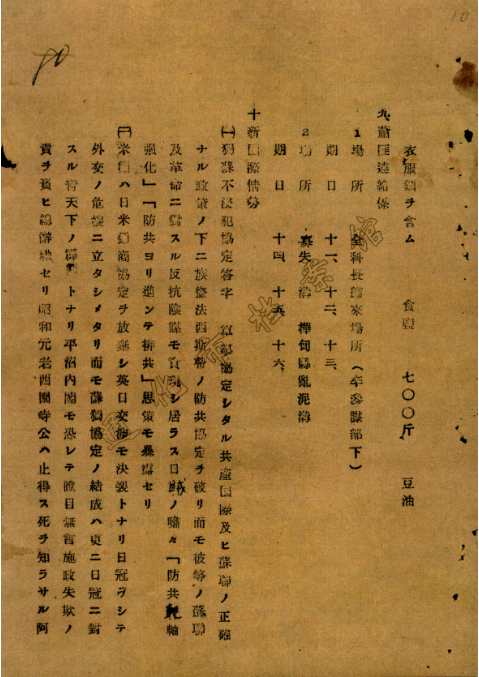 10
80
衣服類ヲ含ム 食鹽 七〇〇斤 豆油
九、蕭匪連絡係
1 場所 金科長歸來場所(辛參謀部下)
期日 十一、十二、十三、
2 場所 寡失 樺甸縣亂泥溝
期日 十四、十五、十六、
十、新國際情勢
(一)獨蘇不侵犯協定答字 協定シタル共產國際及ヒ蘇聯ノ正確
ナル政策ノ下ニ族整法西斯帝ノ防共協定ヲ破リ而モ彼等ノ蘇聯
及革命ニ對スル反抗陰謀モ實現シ居ラス日賊ノ嘯々「防共軌軸
强化」「防共ヨリ進ンテ排共」愚策モ暴露セリ
(二)米國ハ日米通商協定ヲ放棄シ英日交渉モ決裂トナリ日冠ヲシテ
外交ノ危機ニ立タシメタリ而モ蘇獨協定ノ結成ハ更ニ日冠ニ對
スル靑天下ノ トナリ平沼內閣モ恐レテ瞠目無言施政失欺ノ
責ヲ負ヒ總辭職セリ昭和元老西園寺公ハ止得ス死ヲ知ラサル阿